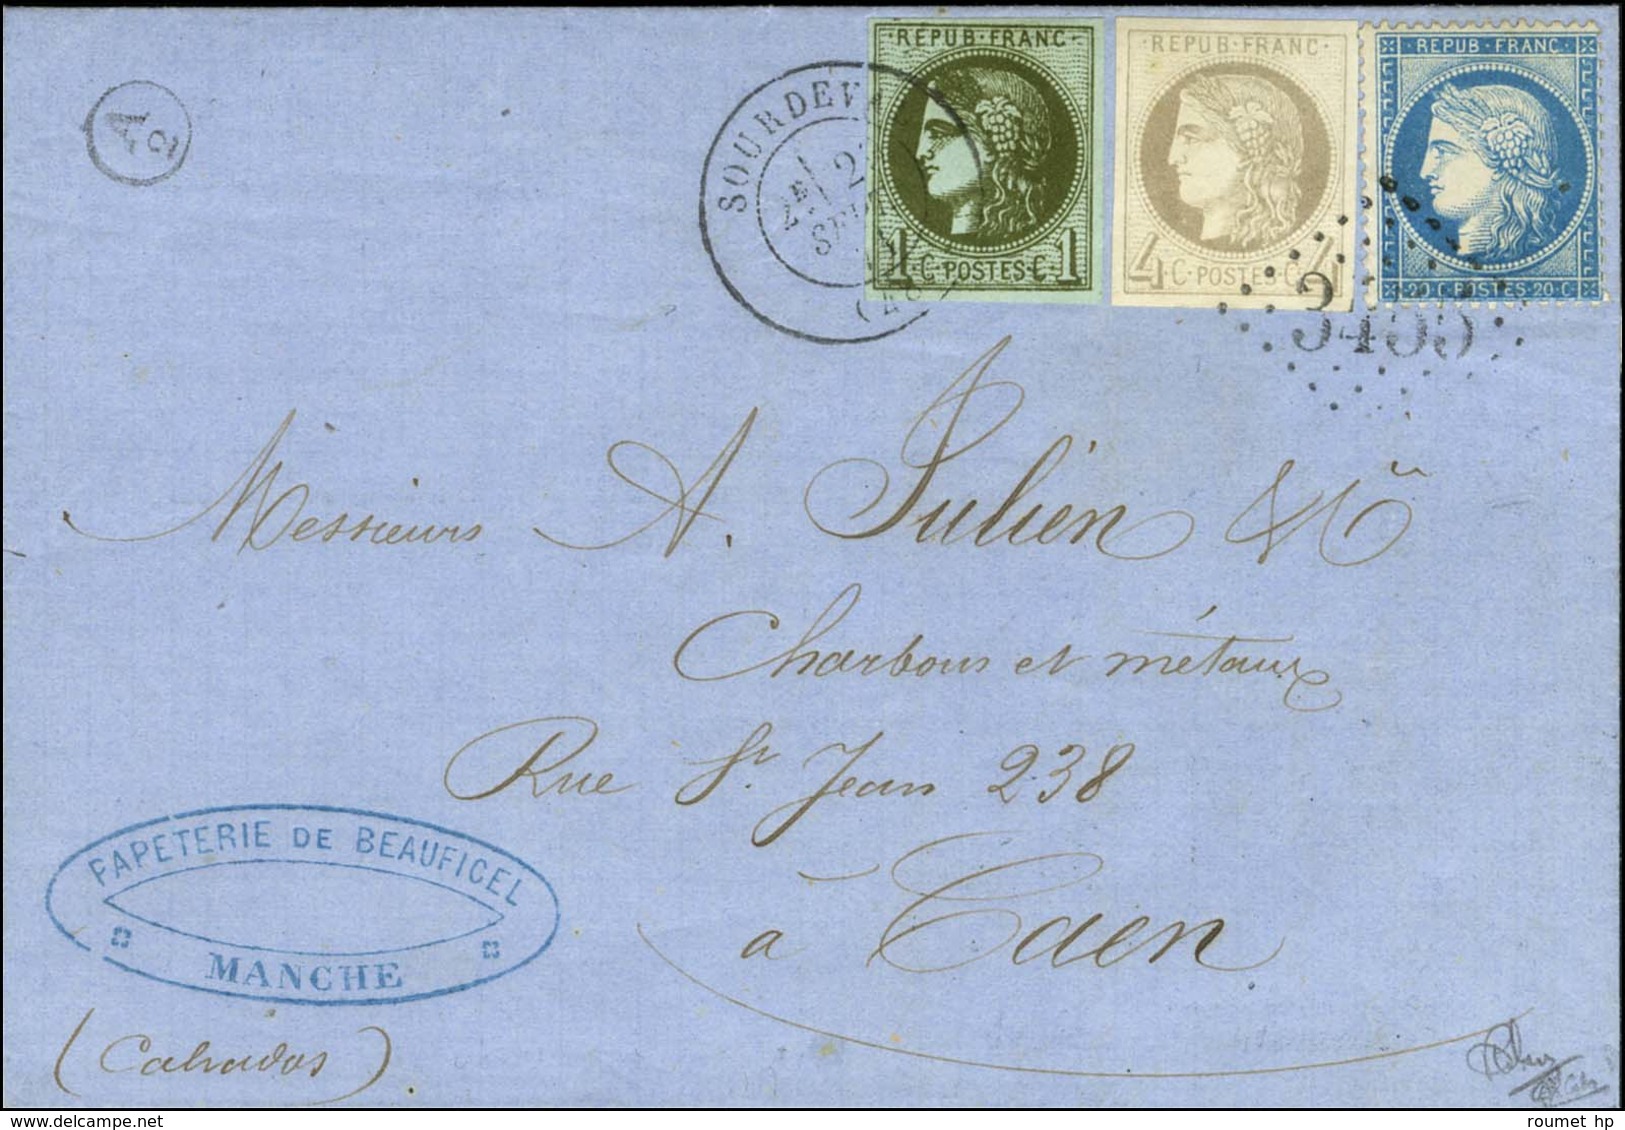 A
2
SOURDEV
2
SEPT
(48
REPUB·FRANC·
1 C·POSTES·C· 1
REPUB·FRANC·
4 C·POSTES·C· 4
REPUB·FRANC·
20 C. POSTES 20 C.
3455
Messieurs A. Julien & Cie
Charbons et métaux
Rue St Jean 238
à Caen
PAPETERIE DE BEAUFICEL
MANCHE
(Calvados)
© roumet hp